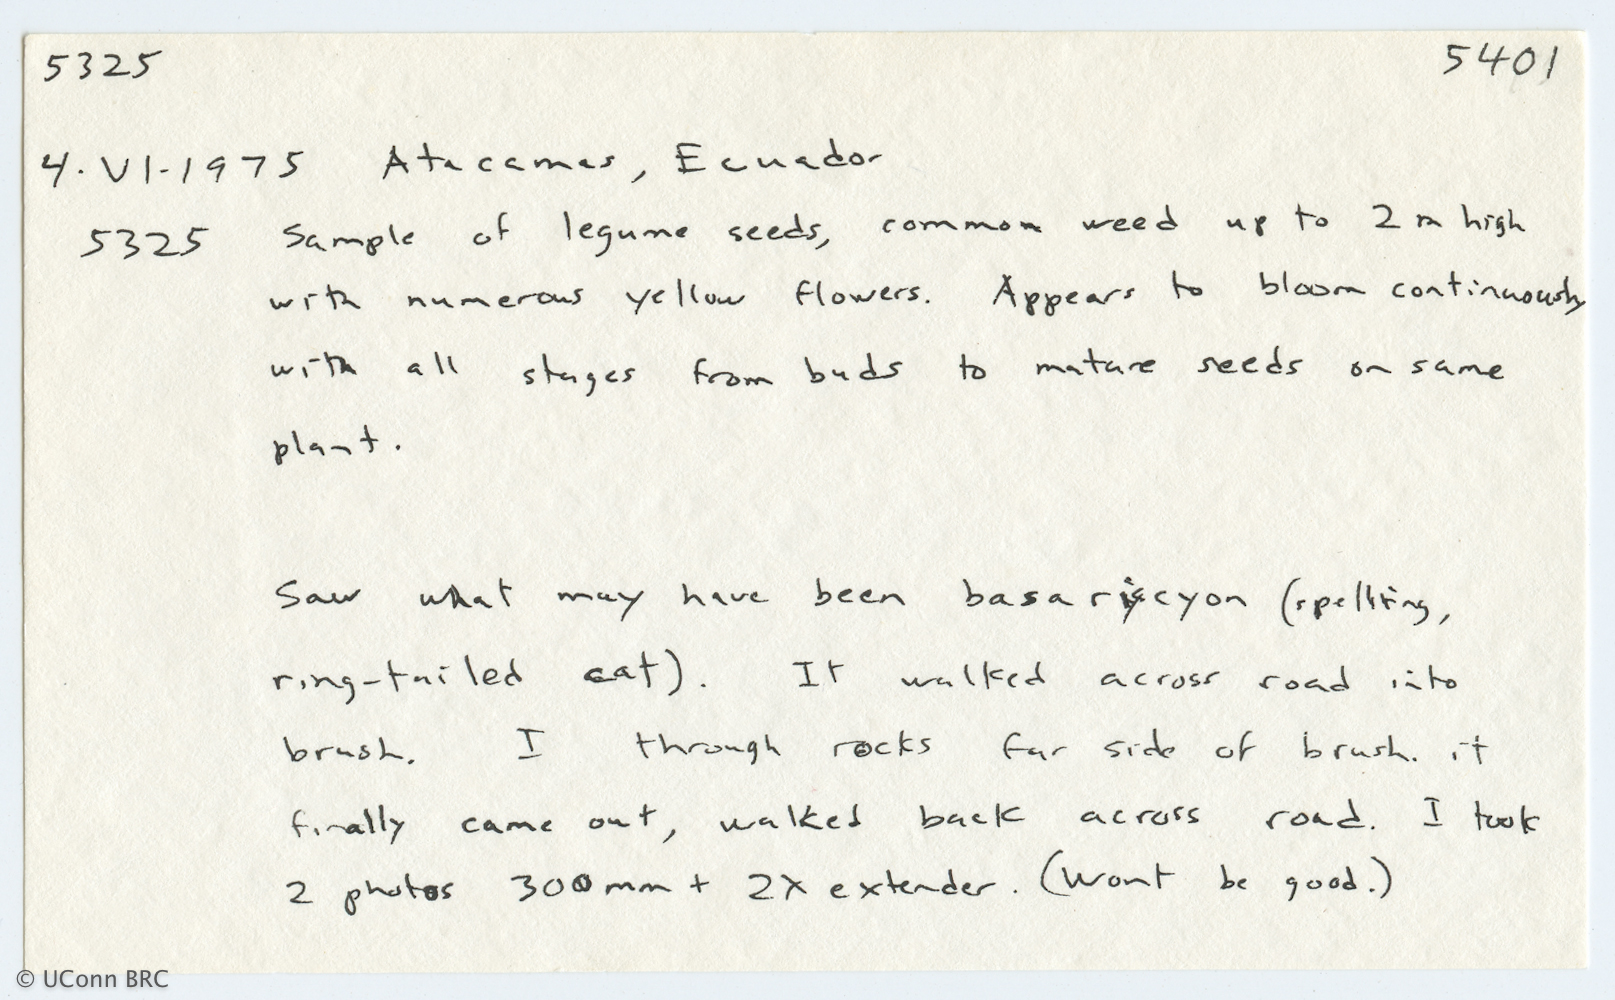 5325 5401
4.VI.1975 Atacames, Ecuador
5325 Sample of legume seeds, common weed up to 2 m high
with numerous yellow flowers. Appears to bloom continuously
with all stages from buds to mature seeds on same
plant.
Saw what may have been basariscyon (spelling,
ring-tailed cat). It walked across road into
brush. I through rocks far side of brush. it
finally came out, walked back across road. I took
2 photos 300mm + 2X extender. (Wont be good.)
© UConn BRC